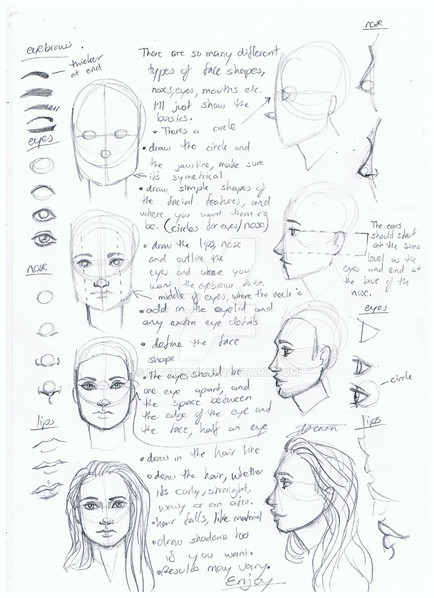 eyebrows
thicker
at end
eyes
nose
lips
There are so many different
types of face shapes,
noses, eyes, mouths etc.
I'll just show the
basics.
• There's a circle
• draw the circle and
the jawline, make sure
it's symetrical
• draw simple shapes of
the facial features, and
where you want them to
be. (circles for eyes/nose)
• draw the lips, nose
and outline the
eyes and where you
want the eyebrows to be.
middle of eyes, where the neck is
• add in the eyelid and
any extra eye details
• define the face
shape
• The eyes should be
one eye apart, and
the space between
the edge of the eye and
the face, half an eye
• draw in the hair line
• draw the hair, whether
its curly, straight,
wavy or an afro.
• hair falls, like material
• draw shadows too
if you want.
• Results may vary.
Enjoy
nose
The ears
should start
at the same
level as the
eyes and end at
the base of the
nose.
eyes
circle
lips